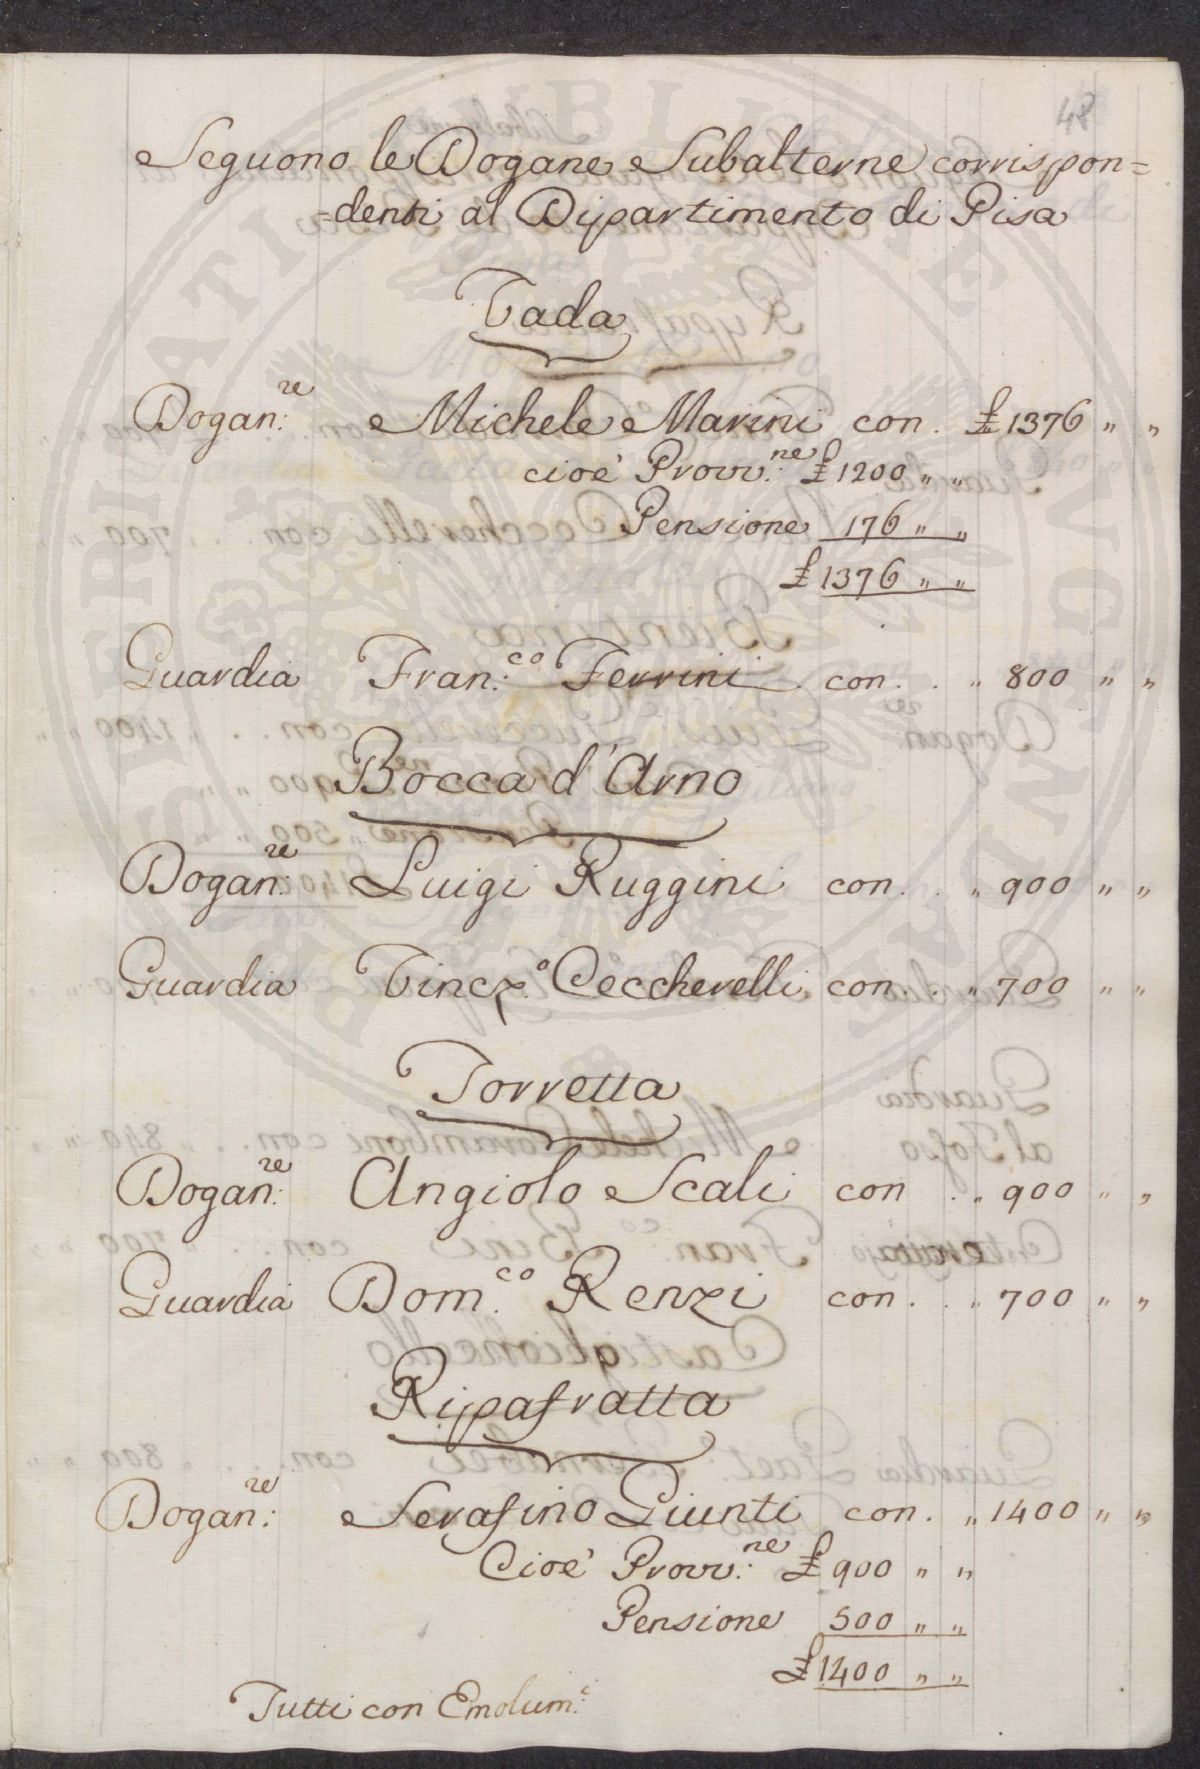 48
Seguono le Dogane Subalterne corrispon=
=denti al Dipartimento di Pisa
Vada
Dogan:re Michele Marini con . £ 1376 " "
cioè Provv:ne £ 1200 " "
Pensione 176 " "
£ 1376 " "
Guardia Fran:co Ferrini con . . " 800 " "
Bocca d'Arno
Dogan:re Luigi Ruggini con . . " 900 " "
Guardia Vincz:o Ceccherelli con . . " 700 " "
Torretta
Dogan:re Angiolo Scali con . " 900 " "
Guardia Dom:co Renzi con . . " 700 " "
Ripafratta
Dogan:re Serafino Giunti con . " 1400 " "
Cioè Provv:ne £ 900 " "
Pensione 500 " "
£ 1400 " "
Tutti con Emolum:i